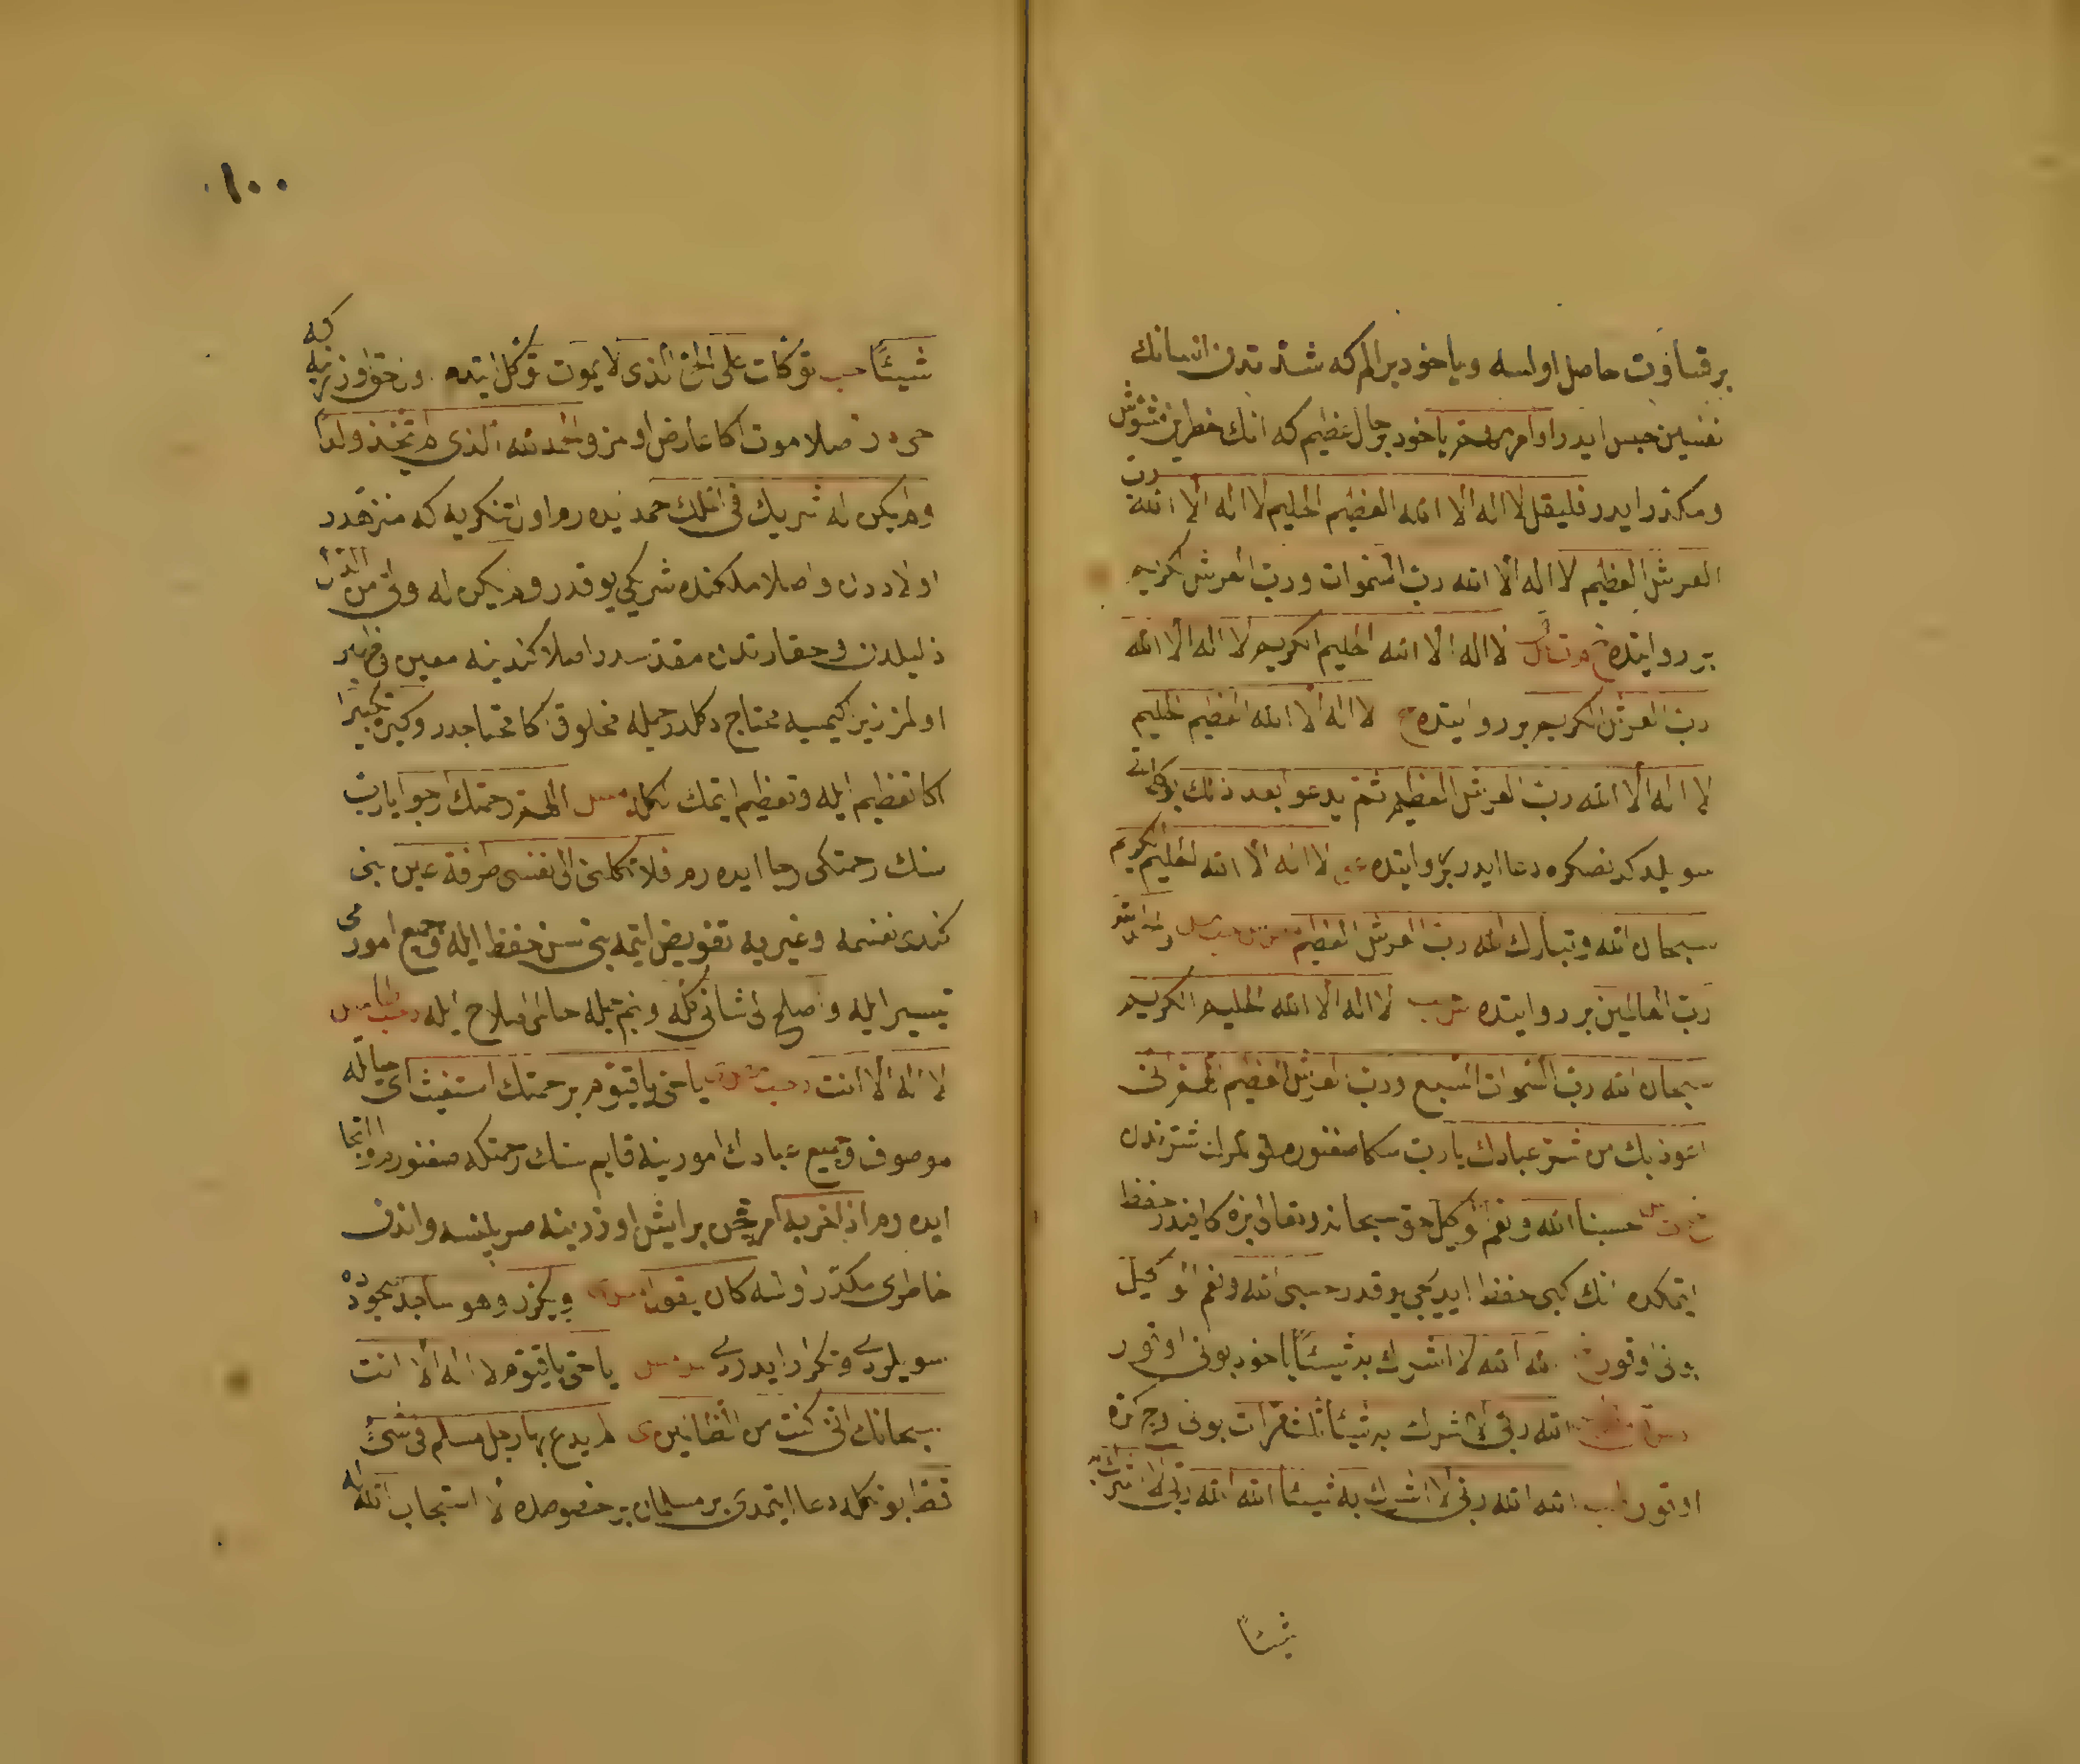 بر قساوت حاصل اولسه ویاخود بر الم که شدتدن انسانك
نفسین حبس ایدر او امر مهم یاخود بر حال عظیم که انك خاطرین مشوش
ومکدر ایدر فلیقل لا اله الا الله العظیم الحلیم لا اله الا الله رب
العرش العظیم لا اله الا الله رب السموات ورب العرش الکریم
بر روایتده لا اله الا الله الحلیم الکریم لا اله الا الله
رب العرش الکریم بر روایتده لا اله الا الله العظیم الحلیم
لا اله الا الله رب العرش العظیم ثم یدعو بعد ذلك
سویلدکدنصکره دعا ایدر بر روایتده لا اله الا الله الحلیم الکریم
سبحان الله وتبارك الله رب العرش العظیم والحمد لله
رب العالمین بر روایتده لا اله الا الله الحلیم الکریم
سبحان الله رب السموات السبع ورب العرش العظیم اللهم انی
اعوذ بك من شر عبادك یارب سکا صغنورم قوللرك شرندن
حسبنا الله ونعم الوکیل حق سبحانه وتعالی بزه کافیدر حفظ
ایتمکده انك کبی حفظ ایدیجی یوقدر حسبی الله ونعم الوکیل
بونی اوقور الله الله لا اشرك به شیئا یاخود بونی اوقور
الله ربی لا اشرك به شیئا ثلث مرات بونی اوچ کره
اوقور الله الله ربی لا اشرك به شیئا الله الله ربی لا اشرك به
شیئا
١٠٠
شیئا حب توکلت علی الحی الذی لا یموت توکل ایتدم اوزرینه که
حی در اصلا موت اکا عارض اولمز والحمد لله الذی لم یتخذ ولدا
ولم یکن له شریك فی الملك حمد ایده رم اول تنکریه که منزهدر
اولاددن واصلا ملکنده شریکی یوقدر ولم یکن له ولی من الذل
ذلیلدن وحقارتدن مقدسدر اصلا کندینه معین وظهیر
اولمز زیرا کیمسیه محتاج دکلدر جمله مخلوق اکا محتاجدر وکبره تکبیرا
اکا تعظیم ایله وتعظیم ایتمك اللهم رحمتك ارجو یارب
سنك رحمتکی رجا ایده رم فلا تکلنی الی نفسی طرفة عین بنی
کندی نفسمه وغیریه تفویض ایتمه بنی سن حفظ ایله وجمیع امورمی
تیسیر ایله واصلح لی شانی کله وبنم جمله حالمی اصلاح ایله
لا اله الا انت یا حی یا قیوم برحمتك استغیث ای حیاتله
موصوف وجمیع عبادك امورینه قایم سنك رحمتکه صغنورم والتجا
ایده رم اذا حزبه امر بر ایش اوزرینه صرپلنسه واندن
خاطری مکدر اولسه کان یقول ویکرر وهو ساجد سجودده
سویلردی وتکرار ایدردی یا حی یا قیوم لا اله الا انت
سبحانك انی کنت من الظالمین لم یدع بها رجل مسلم فی شیء
قط بونکله دعا ایتمدی بر مسلمان بر خصوصده الا استجاب الله له